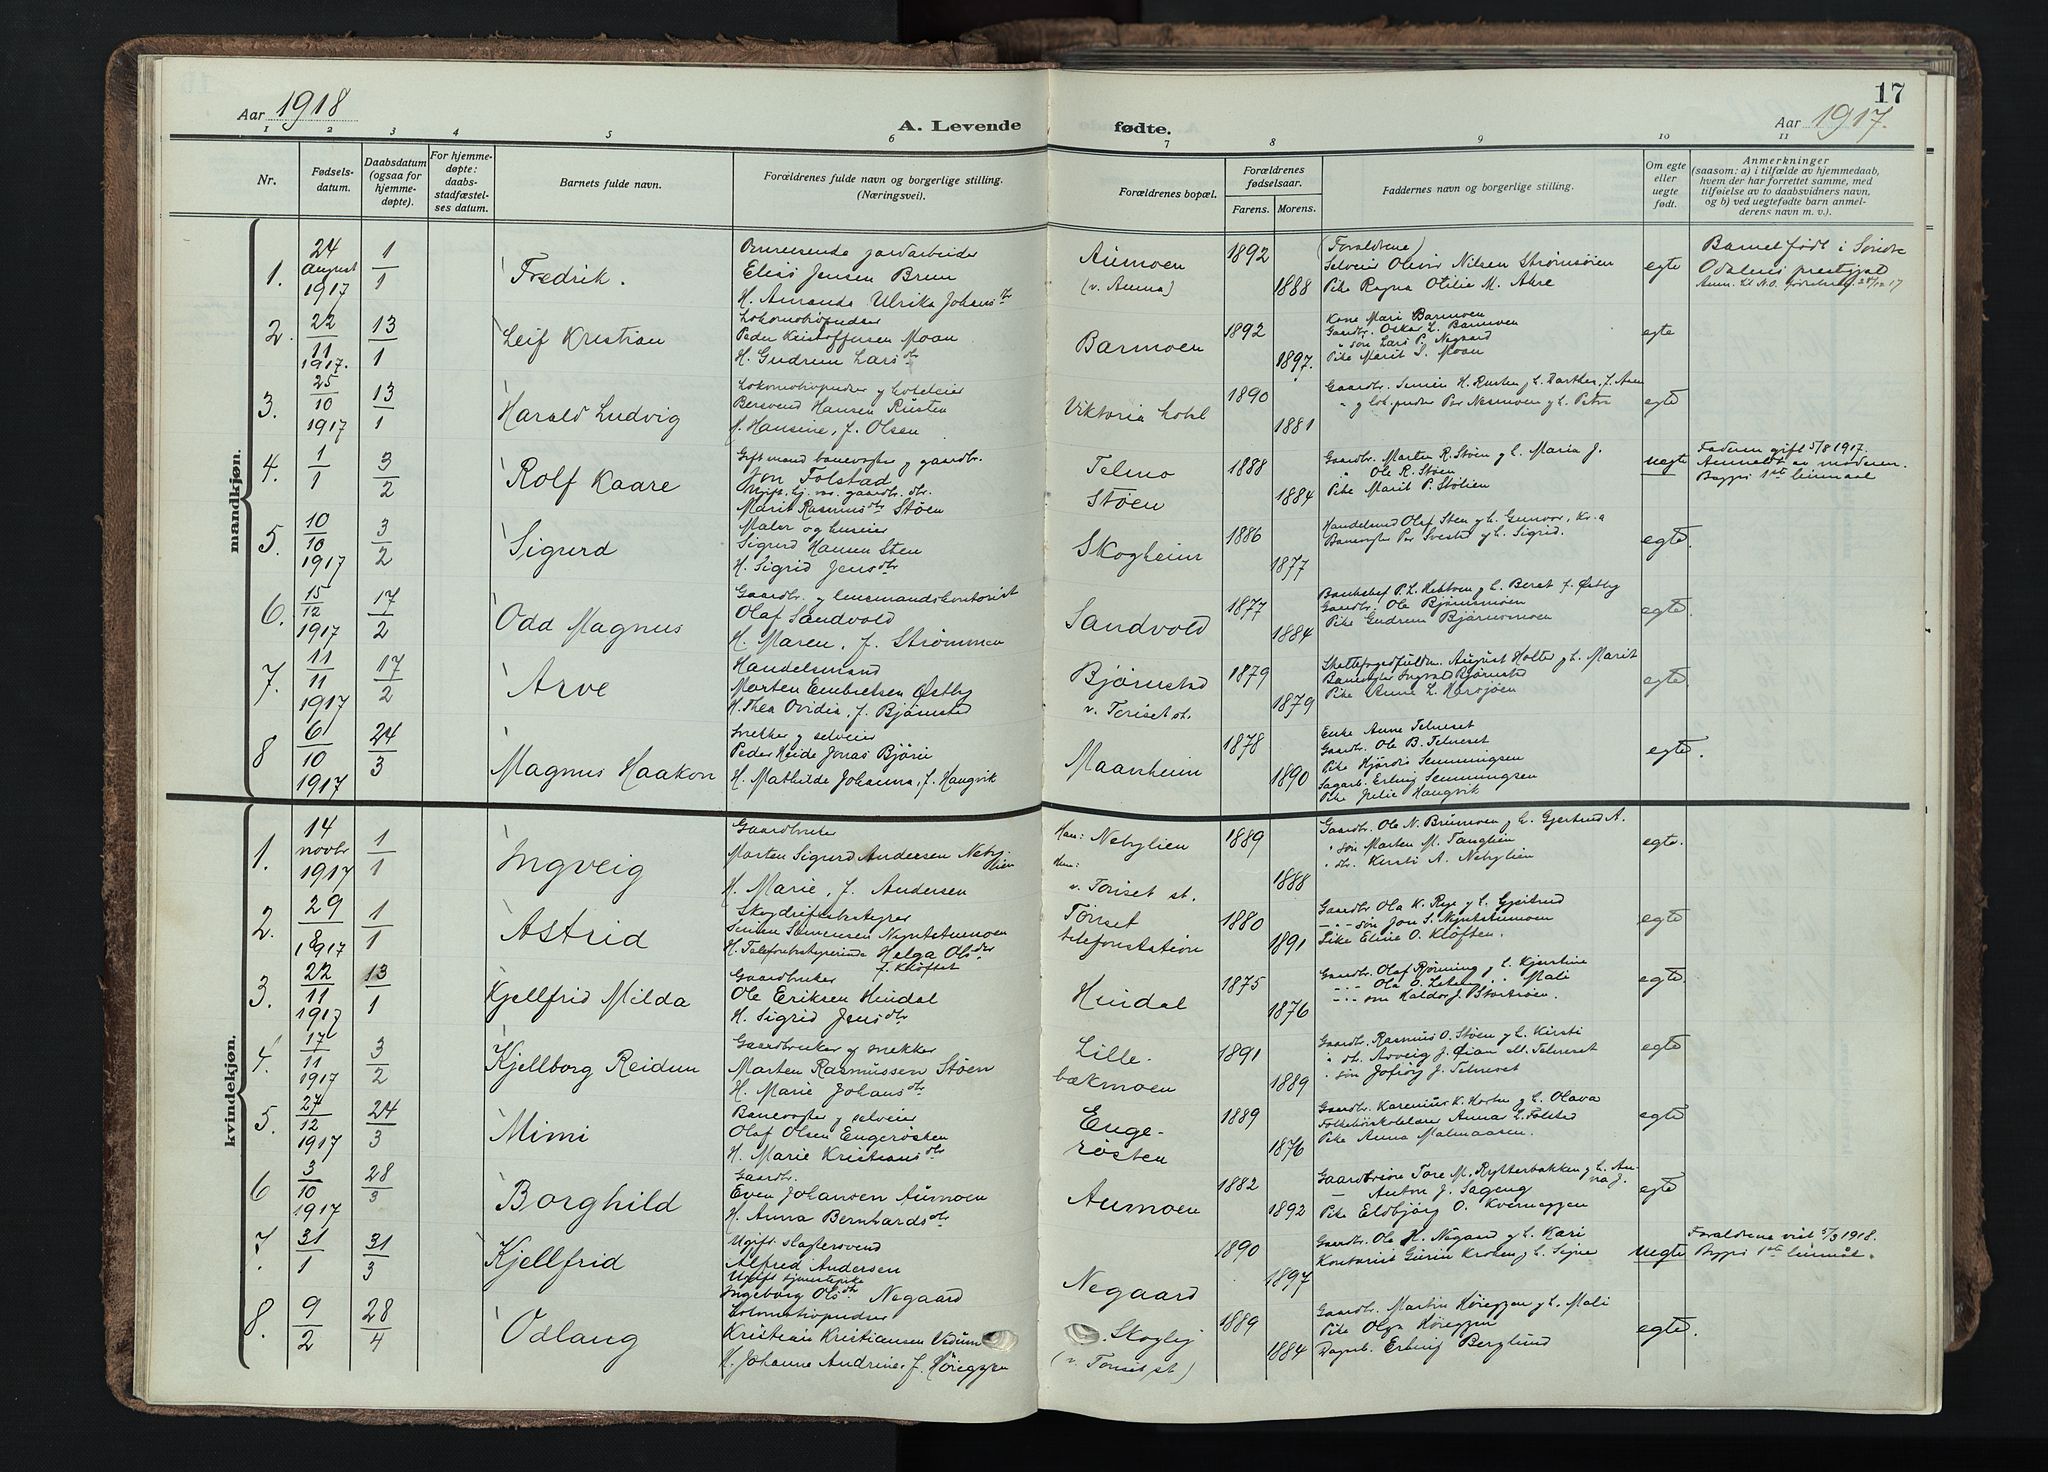 17
Aar 1918
A. Levende fødte.
Aar 1917.
1 2 3 4 5 6 7 8 9 10 11
Nr.
Fødsels-
datum.
Daabsdatum
(ogsaa for
hjemme-
døpte).
For hjemme-
døpte:
daabs-
stadfæstel-
ses datum.
Barnets fulde navn.
Forældrenes fulde navn og borgerlige stilling.
(Næringsvei).
Forældrenes bopæl.
Forældrenes
fødselsaar.
Farens. Morens.
Faddernes navn og borgerlige stilling.
Om egte
eller
uegte
født.
Anmerkninger
(saasom: a) i tilfælde av hjemmedaab,
hvem der har forrettet samme, med
tilføielse av to daabsvidners navn,
og b) ved uegtefødte barn anmel-
derens navn m. v.).
mandkjøn.
1. 24 august 1917 1/1 Fredrik.
Omreisende jordarbeider
Elisø Jensen Brun
H. Amanda Ulrika Johansdtr
Aumoen
(v. Auma)
1892 1888
(Forældrene)
Selveier Oliver Nilsen Strømsøien
Pike Ragna Otilie M. Akre
egte
Barnet født i Søndre
Odalens prestgjeld
2. 22/11 1917. 13/1 Leif Kristian
Lokomotivpudser
Peder Kristoffersen Moan
H. Gudrun Larsdtr
Barmoen
1892 1897.
Kone Mari Barmoen
Gaardbr. Oskar L. Barmoen
" søn Lars P. Negaard
Pike Marit S. Moan
egte
3. 25/10 1917 13/1 Harald Ludvig
Lokomotivpudser og hoteleier
Bersvend Hansen Rusten
H. Hansine, f. Olsen
Viktoria hotel
1890 1881
Gaardbr. Simen H. Rusten og h. Marthea, f. Aaen
" og lok.pudser Per Nesmoen og h. Petra
egte
4. 1/1 3/2 Rolf Kaare
Gift mand banevogter og gaardbr.
Jon Tolstad
Ugift hj. vær. gaardbr. dtr.
Marit Rasmusdtr Støen
Telmo
Støen
1888 1884
Gaardbr. Morten R. Støen og h. Maria J.
" Ole R. Støen
Pike Marit P. Stølien
uegte
Faderen gift 5/8 1917.
Anmeldt av moderen.
Begges 1ste leiermaal
5. 10/10 1917 3/2 Sigurd
Maler og huseier
Sigurd Hansen Sten
H. Sigrid Jensdtr
Skogheim
1886 1877
Handelsmd Olaf Sten og h. Gunvor, Kr.a
Banevogter Per Svested og h. Sigrid.
egte.
6. 15/12 1917 17/2 Odd Magnus
Gaardbr. og lensmandskontorist
Olaf Sandvold
H. Maren, f. Strømmen
Sandvold
1877 1884
Banksjef P. L. Hektoen og h. Beret f. Østby
Gaardbr. Ole Bjørnsmoen
Pike Gudrun Bjørnsmoen
egte.
7. 11/11 1917 17/2 Arve
Handelsmand
Morten Embretsen Østby
H. Thea Ovidia, f. Bjørnstad
Bjørnstad
v. Tønset st.
1879 1879
Skattefogedfuldm. August Holte og h. Marit
Banevogter Ingvald Bjørnstad
Pike Anna L. Harsjøen
egte.
8 6/10 1917 24/3 Magnus Haakon
Snekker og selveier
Peder Heide Jonas Bjørn
H. Mathilde Johanna, f. Haugvik
Maanheim
1878 1890
Enke Anne Telneset
Gaardbr. Ole B. Telneset
Pike Hjørdis Semmingsen
Sagarb. Erling Semmingsen
Pike Julie Haugvik
egte.
kvindekjøn.
1. 14 novbr 1917 1/1 Ingveig
Gaardbruker
Morten Sigurd Andersen Neby-
lien
H. Marie, f. Andersen
Han: Nebylien
Hun: v. Tønset st.
1889 1888
Gaardbr. Ole N. Brumoen og h. Gjertrud A.
" søn Morten M. Tanglien
" dtr. Kirsti A. Nebylien
egte.
2. 29/8 1917 1/1 Astrid
Skogdriftsbestyrer
Simen Simensen Nyntstumoen
H. Telefonbestyrerinde Helga Olsdtr
f. Kløftet
Tønset
telefonstation
1880 1891
Gaardbr Ola K. Rye og h. Gjertrud
— " — søn Jon S. Nyntstumoen
Pike Eline O. Kløften.
egte
3. 22/11 1917 13/1 Kjellfrid Milda
Gaardbruker
Ole Eriksen Hindal
H. Sigrid Jensdtr
Hindal
1875 1876
Gaardbr. Olaf Rønning og h. Kjerstine
" Ola O. Leten " " Mali
" søn Haldor J. Stortrøen.
egte.
4. 17/11 1917 3/2 Kjellborg Reidun
Gaardbruker og snekker
Morten Rasmussen Støen
H. Marie Johansdtr
Lille-
bækmoen
1891 1889
Gaardbr. Rasmus O. Støen og h. Kirsti
" dtr. Aoveig J. Øian
" søn Jofrid J. Telneset
egte
5. 27/12 1917 24/3 Mimi
Banevogter og selveier
Olaf Olsen Engerøsten
H. Marie Kristiansdtr
Enge-
røsten
1889 1876
Gaardbr. Karenius K. Horten og h. Olava
Folkehøiskolelærer Annar L. Tolstad
Pike Anna Malmaasen.
egte
6 3/10 1917 28/3 Borghild
Gaardbr.
Even Johansen Aumoen
H. Anna Bernhardsdtr
Aumoen
1882 1892
Gaardbruker Tore M. Rytterbakken og h. An-
na J.
— Anton J. Sageng
Pike Eldbjørg O. Kverneggen
egte
7. 31/1 31/3 Kjellfrid
Ugift slagtersvend
Alfred Andersen
Ugift tjenestepike
Ingeborg Olsdtr Negaard
Negaard
1890 1897
Gaardbr. Ole H. Negaard og h. Kari
Kontorist Gurin Kroken og h. Signe
uegte
Forældrene viet 5/3 1918.
Begges 1ste leiermaal.
8. 9/2 28/4 Odlaug
Lokomotivpudser
Kristian Kristiansen
H. Johanne Andrine, f. Høieggen
Skoglej
(v. Tønset st)
1889 1884
Gaardbr. Martin Høieggen og h. Mali
Pike Olga Høieggen
Dagarb. Erling Berglund
egte.